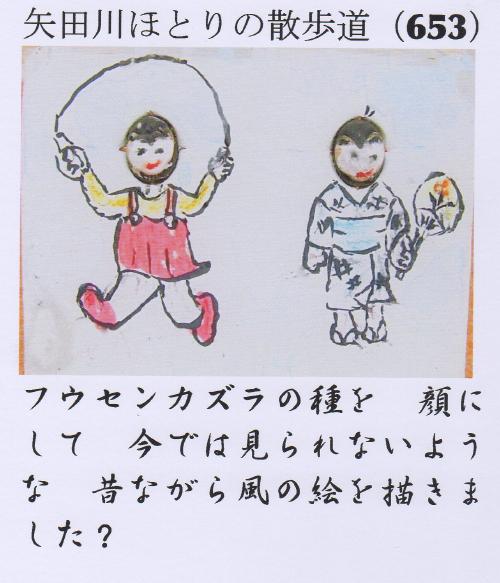 矢田川ほとりの散歩道（653）
フウセンカズラの種を　顔に
して　今では見られないよう
な　昔ながら風の絵を描きま
した？